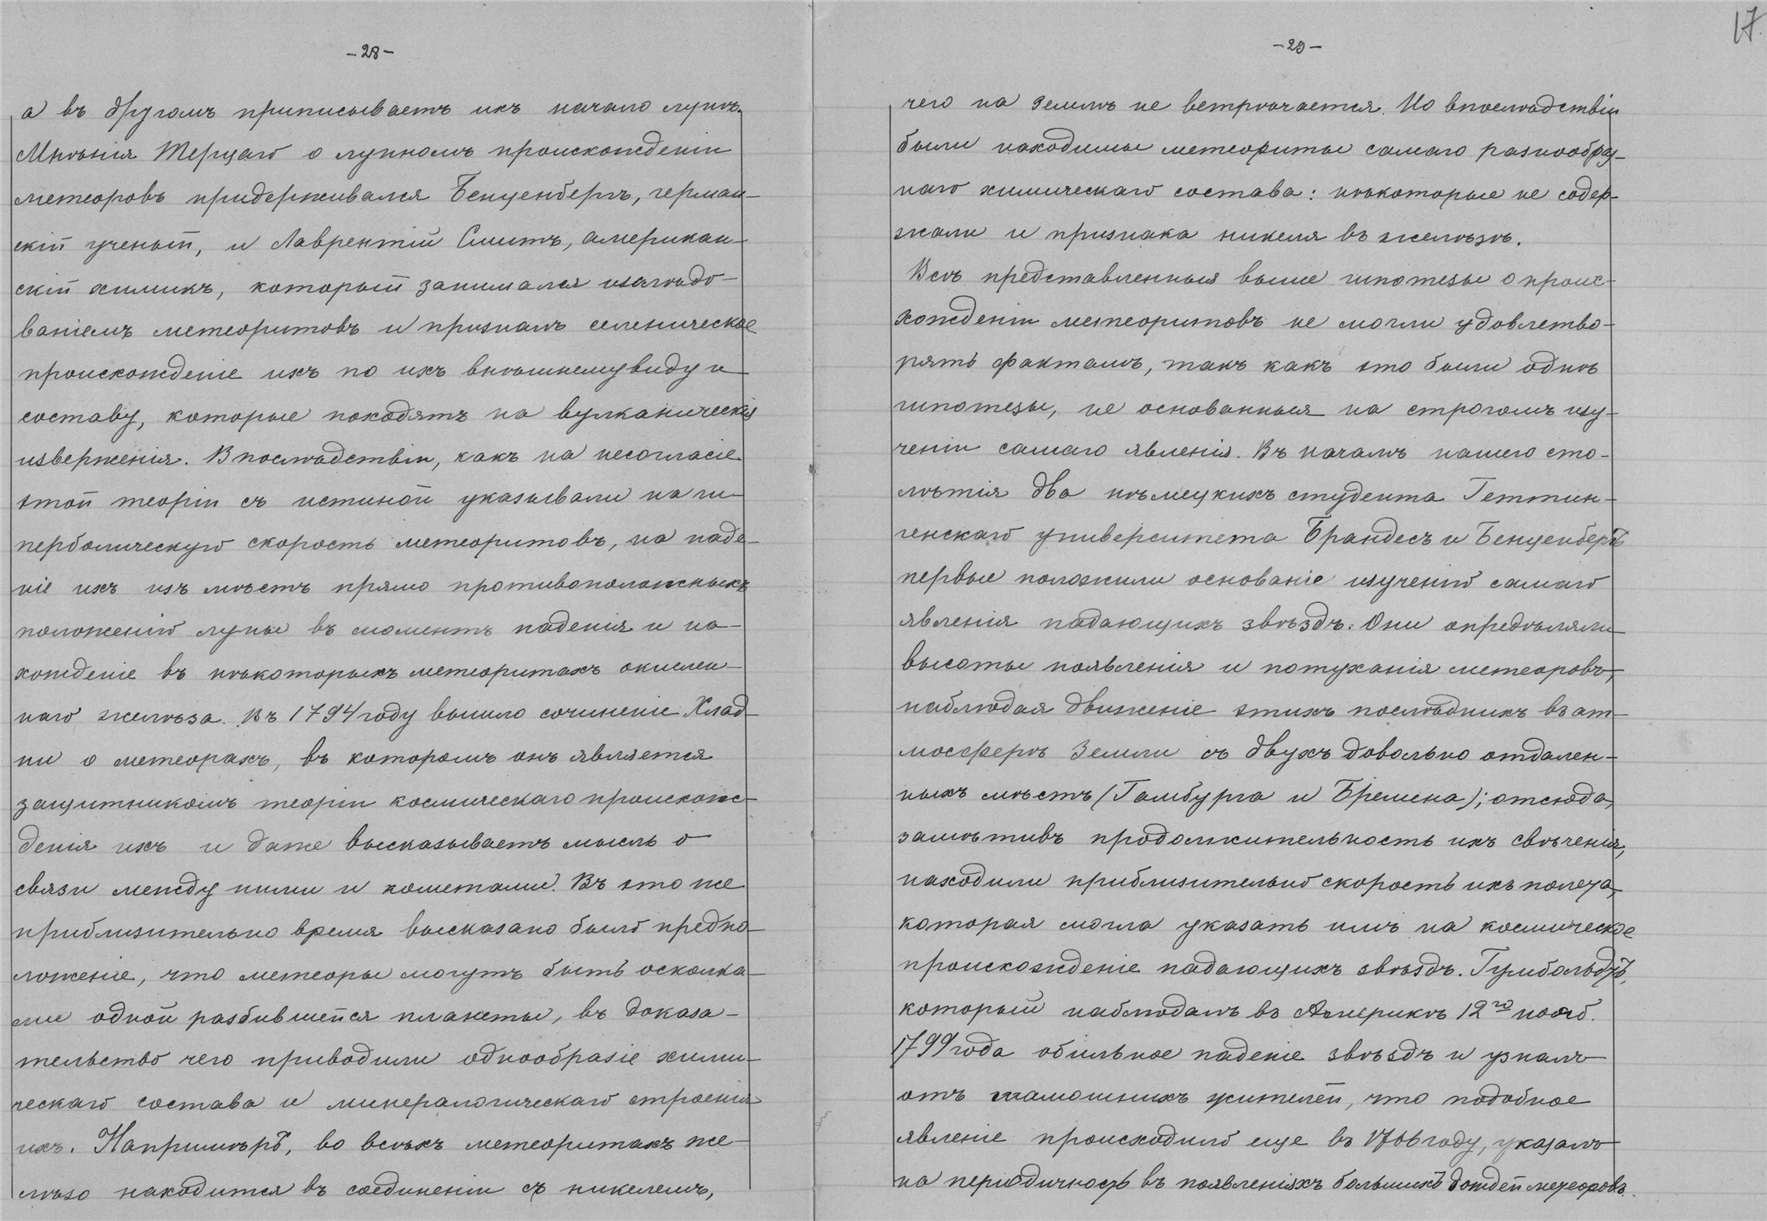 -28-
а въ другомъ приписываетъ ихъ начало лунѣ.
Мнѣнія Терцаго о лунномъ происхожденіи
метеоровъ придерживался Бенценбергъ, герман-
скій ученый, и Лаврентій Смитъ, американ-
скій химикъ, который занимался изслѣдо-
ваніемъ метеоритовъ и призналъ селеническое
происхожденіе ихъ по ихъ внѣшнему виду и
составу, которые походятъ на вулканическія
изверженія. Впослѣдствіи, какъ на несогласіе
этой теоріи съ истиной указывали на ги-
перболическую скорость метеоритовъ, на паде-
ніе ихъ изъ мѣстъ прямо противоположныхъ
положенію луны въ моментъ паденія и на-
хожденіе въ нѣкоторыхъ метеоритахъ окислен-
наго желѣза. Въ 1794 году вышло сочиненіе Хлад-
ни о метеорахъ, въ которомъ онъ является
защитникомъ теоріи космическаго происхож-
денія ихъ и даже высказываетъ мысль о
связи между ними и кометами. Въ это же
приблизительно время высказано было предпо-
ложеніе, что метеоры могутъ быть осколка-
ми одной разбившейся планеты, въ доказа-
тельство чего приводили однообразіе хими-
ческаго состава и минералогическаго строенія
ихъ. Напримѣръ, во всѣхъ метеоритахъ же-
лѣзо находится въ соединеніи съ никелемъ,
17.
-29-
чего на землѣ не встрѣчается. Но впослѣдствіи
были находимы метеориты самаго разнообраз-
наго химическаго состава: нѣкоторые не содер-
жали и признака никеля въ желѣзѣ.
Всѣ представленныя выше гипотезы о проис-
хожденіи метеоритовъ не могли удовлетво-
рять фактамъ, такъ какъ это были однѣ
гипотезы, не основанныя на строгомъ изу-
ченіи самаго явленія. Въ началѣ нашего сто-
лѣтія два нѣмецкихъ студента Геттин-
генскаго университета Брандесъ и Бенценбергъ
первые положили основаніе изученію самаго
явленія падающихъ звѣздъ. Они опредѣляли
высоты появленія и потуханія метеоровъ,
наблюдая движеніе этихъ послѣднихъ въ ат-
мосферѣ Земли съ двухъ довольно отдален-
ныхъ мѣстъ (Гамбурга и Бремена); отсюда,
замѣтивъ продолжительность ихъ свѣченія,
находили приблизительно скорость ихъ полета,
которая могла указать имъ на космическое
происхожденіе падающихъ звѣздъ. Гумбольдтъ,
который наблюдалъ въ Америкѣ 12го нояб.
1799 года обильное паденіе звѣздъ и узналъ
отъ тамошнихъ жителей, что подобное
явленіе происходило еще въ 1766 году, указалъ
на періодичность въ появленіяхъ большихъ дождей метеоровъ.